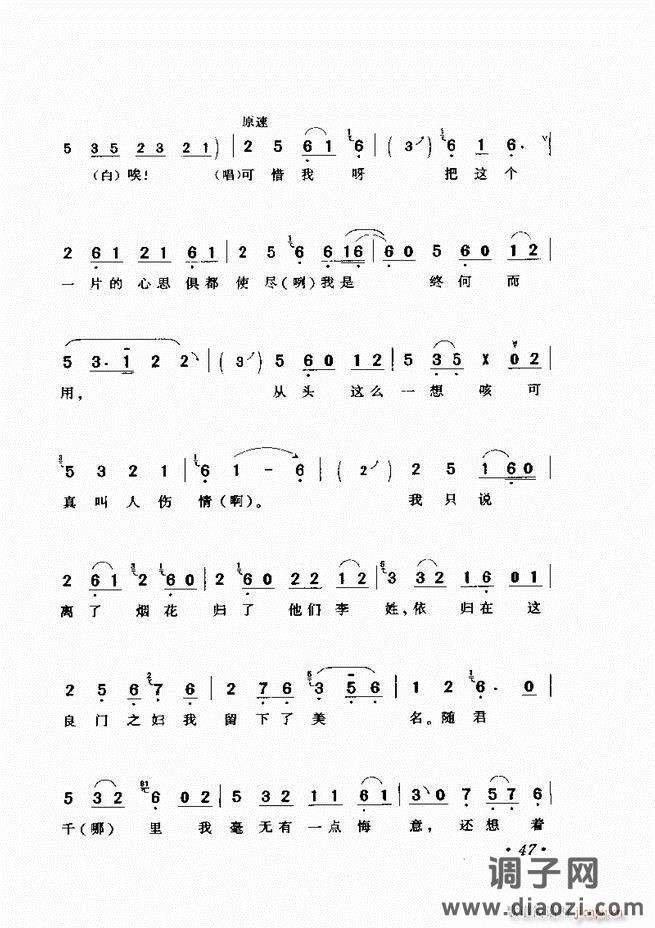 原速
5 35 23 21) | 2 5 61 6 | (3) 6 1 6·
(白)唉! (唱)可惜我呀 把这个
2 61 21 61 | 2 5 6 616 | 60 5 60 12
一片的心思俱都使尽(咧)我是 终何而
5 3·1 2 2 | (3) 5 60 12 | 5 35 X 02
用, 从头这么一想咳可
5 3 2 1 | 6 1 - 6 | (2) 2 5 160
真叫人伤情(啊)。 我只说
2 61 2 60 | 2 60 22 12 | 3 32 16 01
离了烟花归了他们李姓,依归在这
2 5 6 7 6 | 2 76 3 56 | 1 2 6· 0
良门之妇我留下了美名。随君
5 32 6 02 | 5 32 11 61 | 30 7 57 6
千(哪)里我毫无有一点悔意,还想着
·47·
调子网
www.diaozi.com